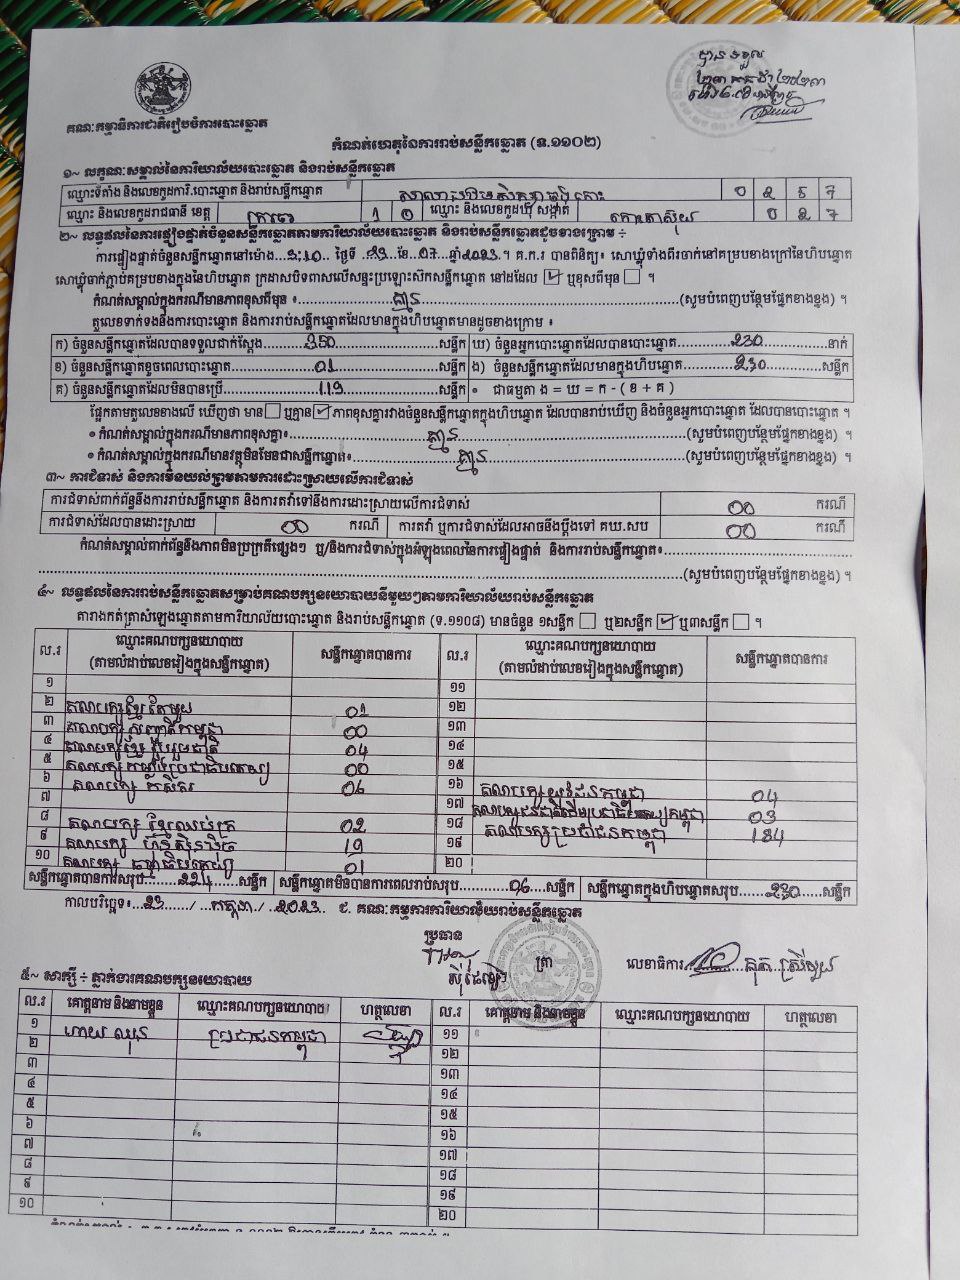 បានទទួល
ថ្ងៃ២៣ កក្កដា ២០២៣
គណៈកម្មាធិការជាតិរៀបចំការបោះឆ្នោត
កំណត់ហេតុនៃការរាប់សន្លឹកឆ្នោត (ទ.១១០២)
១~ លក្ខណៈសម្គាល់នៃការិយាល័យបោះឆ្នោត និងរាប់សន្លឹកឆ្នោត
ឈ្មោះទីតាំង និងលេខកូដការិ.បោះឆ្នោត និងរាប់សន្លឹកឆ្នោត 0 2 5 7
ឈ្មោះ និងលេខកូដរាជធានី ខេត្ត ក្រចេះ 1 0 ឈ្មោះ និងលេខកូដឃុំ សង្កាត់ កោះតាស៊ុយ 0 2 7
២~ លទ្ធផលនៃការផ្ទៀងផ្ទាត់ចំនួនសន្លឹកឆ្នោតតាមការិយាល័យបោះឆ្នោត និងរាប់សន្លឹកឆ្នោតដូចខាងក្រោម ÷
ការផ្ទៀងផ្ទាត់ចំនួនសន្លឹកឆ្នោតនៅម៉ោង..3:10.. ថ្ងៃទី ..23.. ខែ..07.. ឆ្នាំ2023.. ។ គ.ក.រ បានពិនិត្យ៖ សោឃ្លុំទាំងពីរចាក់នៅគម្របខាងក្រៅនៃហិបឆ្នោត
សោឃ្លុំចាក់ភ្ជាប់គម្របខាងក្នុងនៃហិបឆ្នោត ក្រដាសបិទពាសលើសន្ទះប្រឡោះស៊កសន្លឹកឆ្នោត នៅដដែល ✓ ឬខុសពីមុន ។
កំណត់សម្គាល់ក្នុងករណីមានភាពខុសពីមុន ៖ គ្មាន (សូមបំពេញបន្ថែមផ្នែកខាងខ្នង) ។
តួលេខទាក់ទងនឹងការបោះឆ្នោត និងការរាប់សន្លឹកឆ្នោតដែលមានក្នុងហិបឆ្នោតមានដូចខាងក្រោម ៖
ក) ចំនួនសន្លឹកឆ្នោតដែលបានទទួលជាក់ស្តែង 350 សន្លឹក ឃ) ចំនួនអ្នកបោះឆ្នោតដែលបានបោះឆ្នោត 230 នាក់
ខ) ចំនួនសន្លឹកឆ្នោតខូចពេលបោះឆ្នោត 01 សន្លឹក ង) ចំនួនសន្លឹកឆ្នោតដែលមានក្នុងហិបឆ្នោត 230 សន្លឹក
គ) ចំនួនសន្លឹកឆ្នោតដែលមិនបានប្រើ 119 សន្លឹក • ជាធម្មតា ង = ឃ = ក - ( ខ + គ )
ផ្អែកតាមតួលេខខាងលើ ឃើញថា មាន ឬគ្មាន ✓ ភាពខុសគ្នារវាងចំនួនសន្លឹកឆ្នោតក្នុងហិបឆ្នោត ដែលបានរាប់ឃើញ និងចំនួនអ្នកបោះឆ្នោត ដែលបានបោះឆ្នោត ។
• កំណត់សម្គាល់ក្នុងករណីមានភាពខុសគ្នា៖ គ្មាន (សូមបំពេញបន្ថែមផ្នែកខាងខ្នង) ។
• កំណត់សម្គាល់ក្នុងករណីមានវត្ថុមិនមែនជាសន្លឹកឆ្នោត៖ គ្មាន (សូមបំពេញបន្ថែមផ្នែកខាងខ្នង) ។
៣~ ការជំទាស់ និងការមិនយល់ព្រមតាមការដោះស្រាយលើការជំទាស់
ការជំទាស់ពាក់ព័ន្ធនឹងការរាប់សន្លឹកឆ្នោត និងការតវ៉ាទៅនឹងការដោះស្រាយលើការជំទាស់ 00 ករណី
ការជំទាស់ដែលបានដោះស្រាយ 00 ករណី ការតវ៉ា ឬការជំទាស់ដែលអាចនឹងប្តឹងទៅ គឃ.សប 00 ករណី
កំណត់សម្គាល់ពាក់ព័ន្ធនឹងភាពមិនប្រក្រតីផ្សេងៗ ឬ/និងការជំទាស់ក្នុងអំឡុងពេលនៃការផ្ទៀងផ្ទាត់ និងការរាប់សន្លឹកឆ្នោត៖
(សូមបំពេញបន្ថែមផ្នែកខាងខ្នង) ។
៤~ លទ្ធផលនៃការរាប់សន្លឹកឆ្នោតសម្រាប់គណបក្សនយោបាយនីមួយៗតាមការិយាល័យរាប់សន្លឹកឆ្នោត
តារាងកត់ត្រាសំឡេងឆ្នោតតាមការិយាល័យបោះឆ្នោត និងរាប់សន្លឹកឆ្នោត (ទ.១១០៨) មានចំនួន ១សន្លឹក ឬ២សន្លឹក ✓ ឬ៣សន្លឹក ។
ល.រ ឈ្មោះគណបក្សនយោបាយ (តាមលំដាប់លេខរៀងក្នុងសន្លឹកឆ្នោត) សន្លឹកឆ្នោតបានការ ល.រ ឈ្មោះគណបក្សនយោបាយ (តាមលំដាប់លេខរៀងក្នុងសន្លឹកឆ្នោត) សន្លឹកឆ្នោតបានការ
១ ១១
២ គណបក្សខ្មែរតែមួយ 01 ១២
៣ គណបក្សសញ្ជាតិកម្ពុជា 00 ១៣
៤ គណបក្សខ្មែររួបរួមជាតិ 04 ១៤
៥ គណបក្សកម្លាំងប្រជាធិបតេយ្យ 00 ១៥
៦ គណបក្សកសិករ 06 ១៦ គណបក្សយុវជនកម្ពុជា 04
៧ ១៧ 03
៨ គណបក្សខ្មែរឈប់ក្រ 02 ១៨ គណបក្សប្រជាជនកម្ពុជា 184
៩ គណបក្សហ៊្វុនស៊ិនប៉ិច 19 ១៩
១០ គណបក្សធម្មាធិបតេយ្យ 01 ២០
សន្លឹកឆ្នោតបានការសរុប 224 សន្លឹក សន្លឹកឆ្នោតមិនបានការពេលរាប់សរុប 06 សន្លឹក សន្លឹកឆ្នោតក្នុងហិបឆ្នោតសរុប 230 សន្លឹក
កាលបរិច្ឆេទ៖ 23 / កក្កដា / 2023 ជ. គណៈកម្មការការិយាល័យរាប់សន្លឹកឆ្នោត
ប្រធាន
ត្រា លេខាធិការ
៥~ សាក្សី ÷ ភ្នាក់ងារគណបក្សនយោបាយ
ល.រ គោត្តនាម និងនាមខ្លួន ឈ្មោះគណបក្សនយោបាយ ហត្ថលេខា ល.រ គោត្តនាម និងនាមខ្លួន ឈ្មោះគណបក្សនយោបាយ ហត្ថលេខា
១ ហាយ ឈុន ប្រជាជនកម្ពុជា ១១
២ ១២
៣ ១៣
៤ ១៤
៥ ១៥
៦ ១៦
៧ ១៧
៨ ១៨
៩ ១៩
១០ ២០